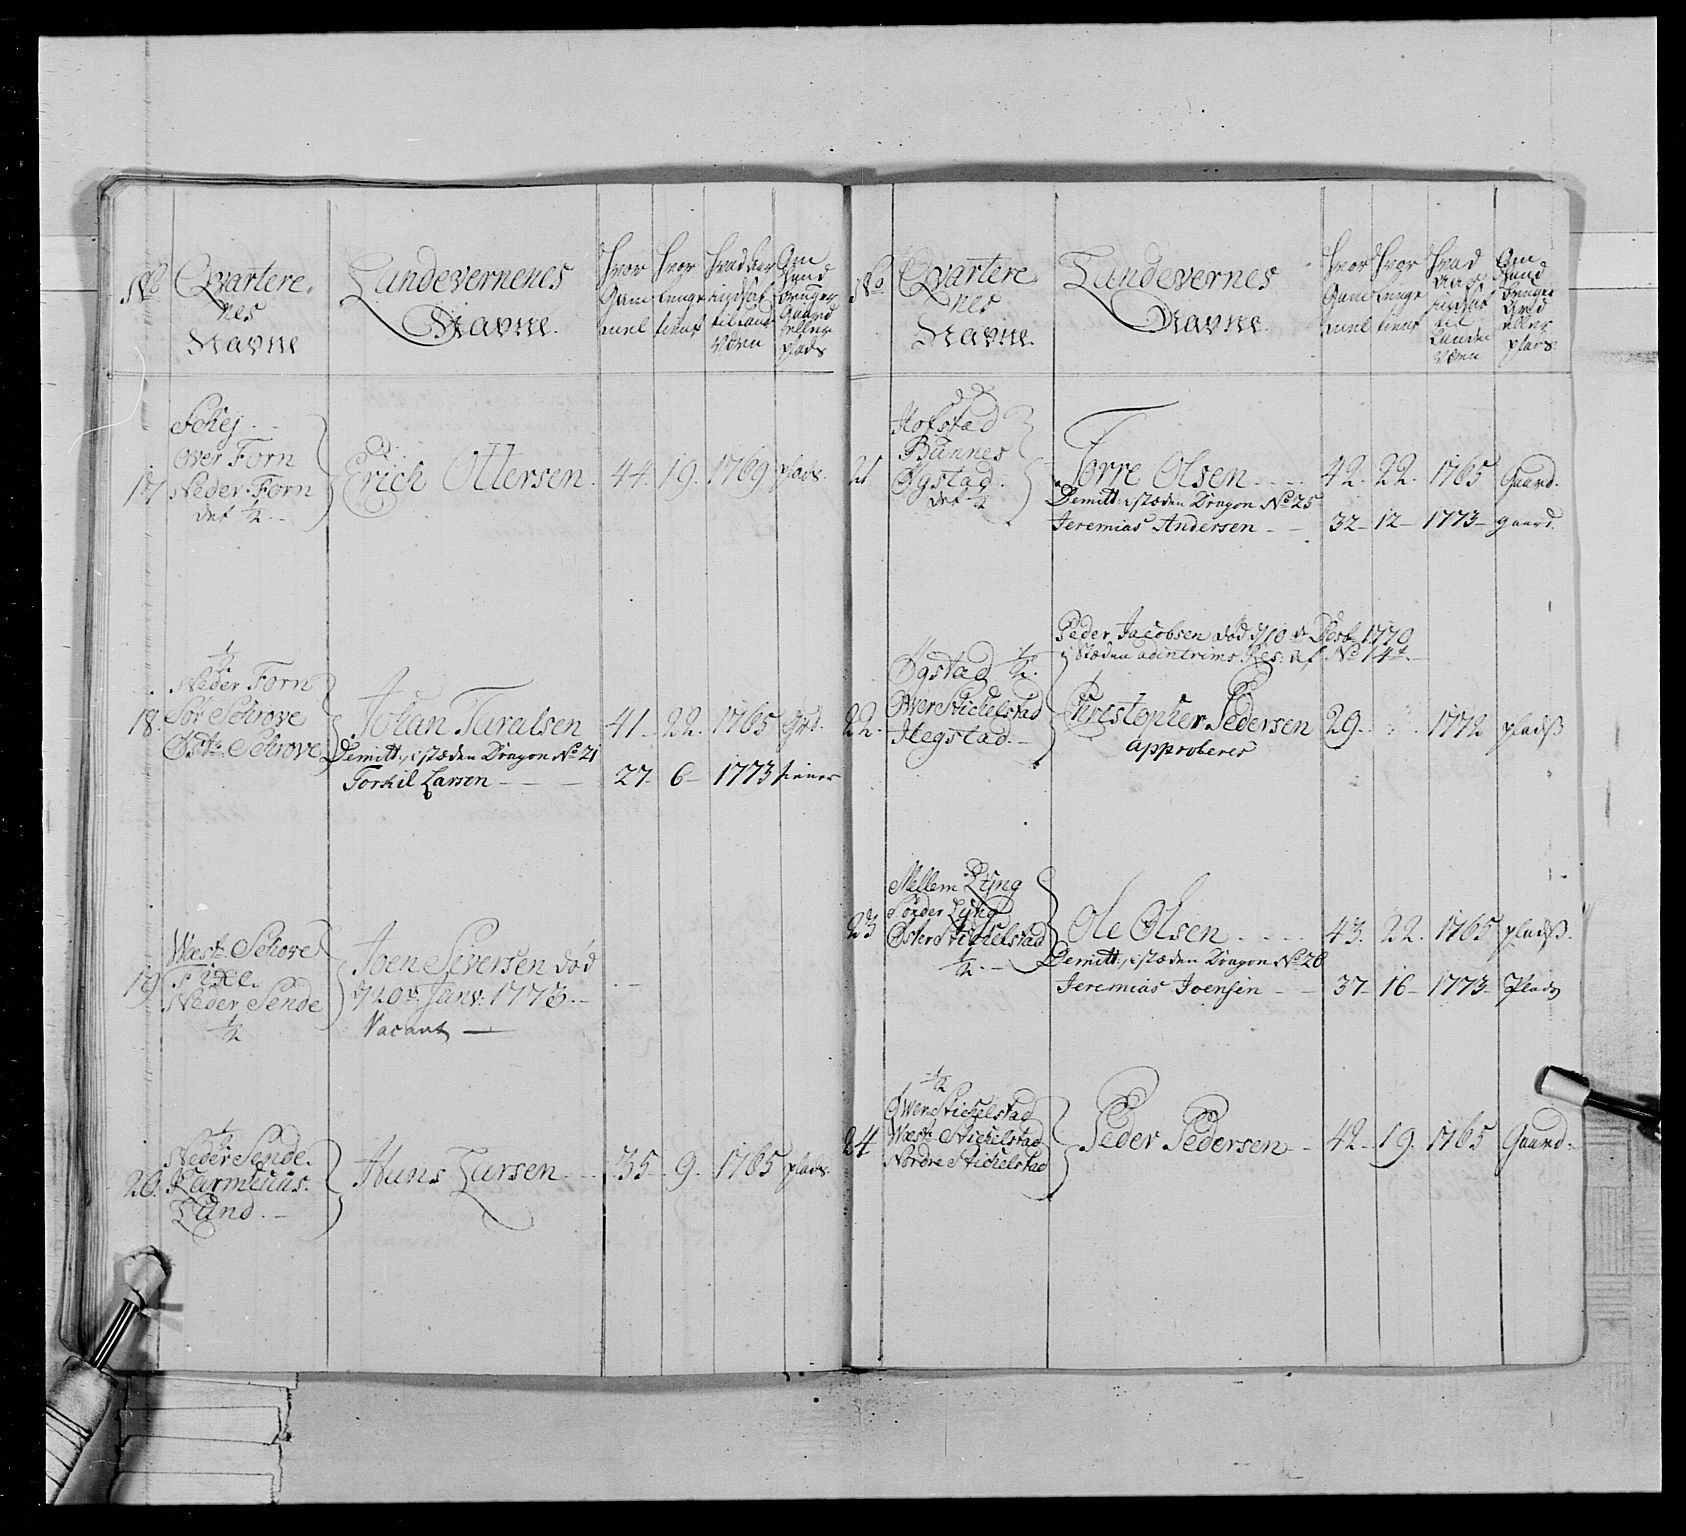 No
Qvartere
nes
Navne
Landevernenes
Navne
Hvor
Gam
mel
Hvor
lenge
tient
Hvad Aar
indsat
til Land
Værn
Om
Hand
bruger
Gaard
eller
plads
17
Schej
Over Forn
Neder Forn
det 1/2
Erich Ottersen 44. 19. 1769 plads
18.
1/2
Neder Forn
Sör Schrove
Øste Schrove
Johan Taralsen 41. 22. 1765 Grd.
Demitt: i stæden Dragon No 21
Torkil Larsen 27 6 1773 tiener
19
Wæst Schove
Fixe.
Neder Sende
1/2
Joen Siversen död
d 20 v Janv: 1773.
Vacant
20.
1/2
Neder Sende.
Karmhuus.
Lund.
Hans Larsen 35 9. 1765 plads
No
Qvartere
nes
Navne.
Landevernes
Navne.
Hvor
Gam
mel
Hvor
lenge
tient
Hvad
Aar
indsat
til
Lande
Værn
Om
Hand
bruger
Grd
eller
plads
21
Hofstad
Bunnes
Øgstad.
det 1/2
Torre Olsen 42. 22. 1765 Gaard.
Demitt: i stæden Dragon No 25
Jeremias Andersen 32 12 1773 gaard.
22.
Øgstad 1/2.
Over Stichelstad
Hegstad.
Peder Jacobsen död d 10 de Desbr 1770
i Stæden adintrims Res: af No 14t
Christopher Pedersen 29. 1772 pladß
approberes
23
Mellem Lÿng
Sönder Lÿng
Øster Stichelstad
1/2.
Ole Olsen 43. 22. 1765 pladß.
Demitt: i stæden Dragon No 26
Jeremias Joensen 37 16 1773 Plads
24
1/2
Over Stichelstad
Wæst Stichelstad
Nordre Stichelstad
Peder Pedersen 42 19. 1765 Gaard.